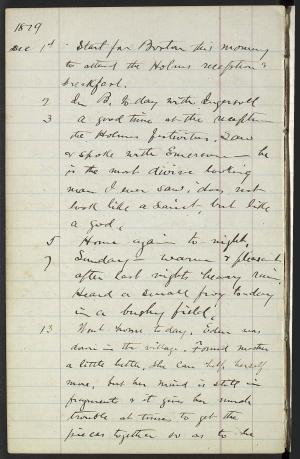 1879
Dec 1st Start for Boston this morning
to attend the Holmes reception &
breakfast.
2 In B. to day with Ingersoll
3 a good time at the reception
the Holmes festivities. Saw
& spoke with Emerson — he
is the most divine looking
man I ever saw; does not
look like a saint, but like
a god.
5 Home again to-night.
7 Sunday — warm & pleasant
after last nights heavy rain.
Heard a small frog to-day
in a bushy field.
13 Went home to-day. Eden was
down in the village. Found mother
a little better, she can help herself
more, but her mind is still in
fragments & it gives her much
trouble at times to get the
pieces together so as to be